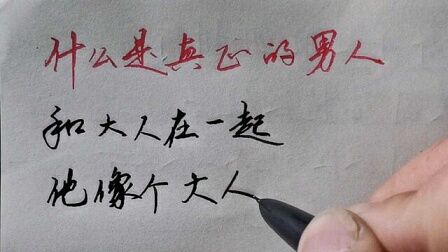 什么是真正的男人
和大人在一起
他像个大人